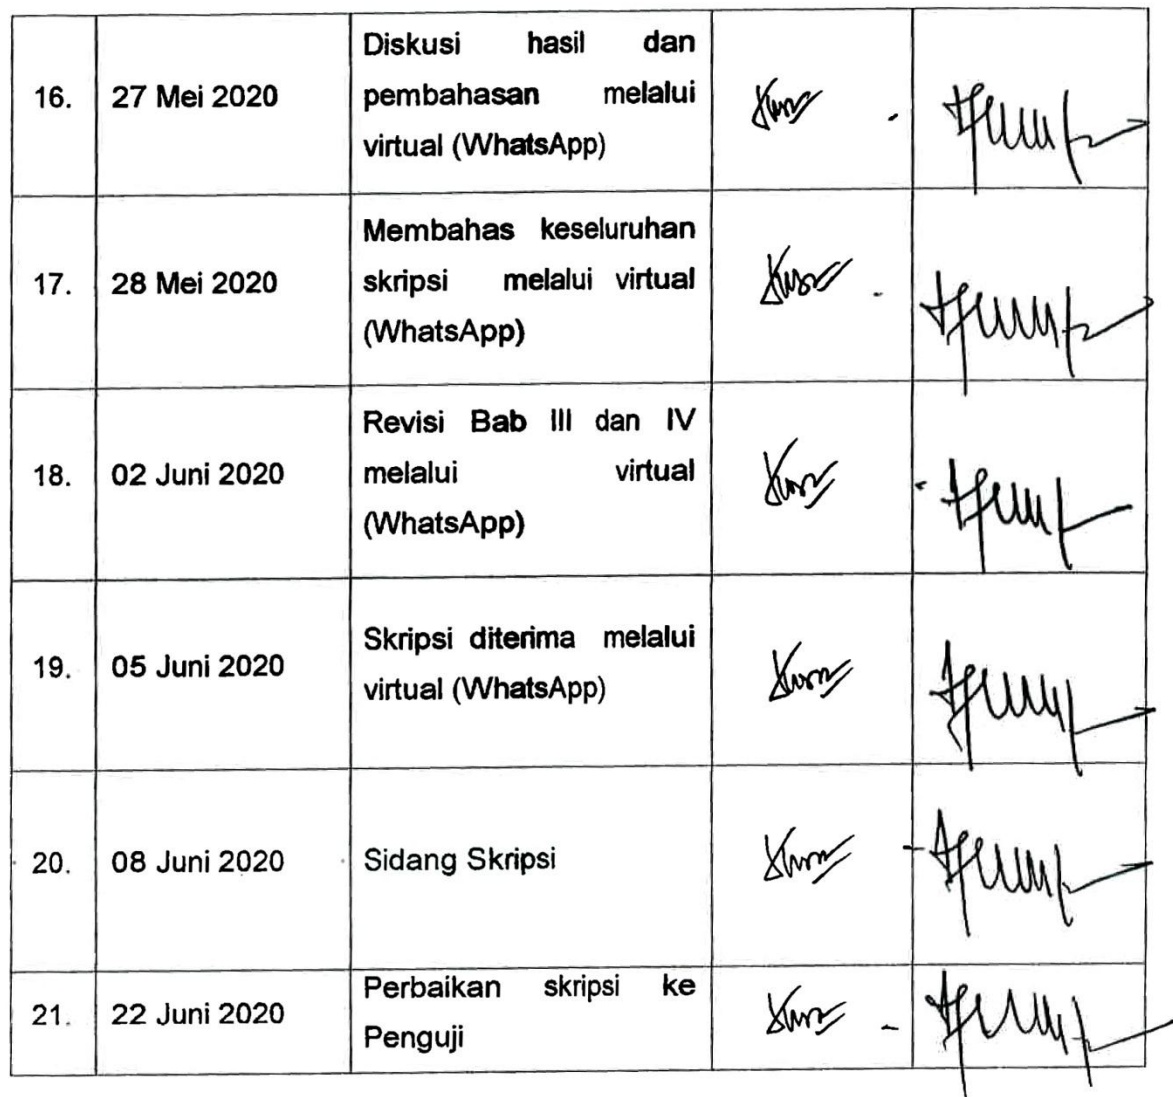 16.
27 Mei 2020
Diskusi hasil dan
pembahasan melalui
virtual (WhatsApp)
17.
28 Mei 2020
Membahas keseluruhan
skripsi melalui virtual
(WhatsApp)
18.
02 Juni 2020
Revisi Bab III dan IV
melalui virtual
(WhatsApp)
19.
05 Juni 2020
Skripsi diterima melalui
virtual (WhatsApp)
20.
08 Juni 2020
Sidang Skripsi
21.
22 Juni 2020
Perbaikan skripsi ke
Penguji